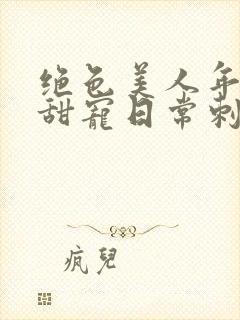 绝色美人年
甜寵日常刺
疯兒